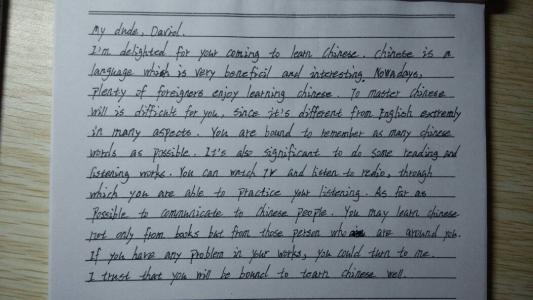 My dude, David.
I'm delighted for your coming to learn Chinese. Chinese is a
language which is very beneficil and interesting. Nowadays,
plenty of foreigners enjoy learning chinese. To master Chinese
will is difficult for you, since it's different from English extremly
in many aspects. You are bound to remember as many chinese
words as possible. It's also significant to do some reading and
listening works. You can watch TV and listen to redio, through
which you are able to practice your listening. As far as
possible to communicate to Chinese people. You may learn chinese
not only from books but from those person who are around you.
If you have any problem in your works, you could turn to me.
I trust that you will be bound to learn Chinese well.